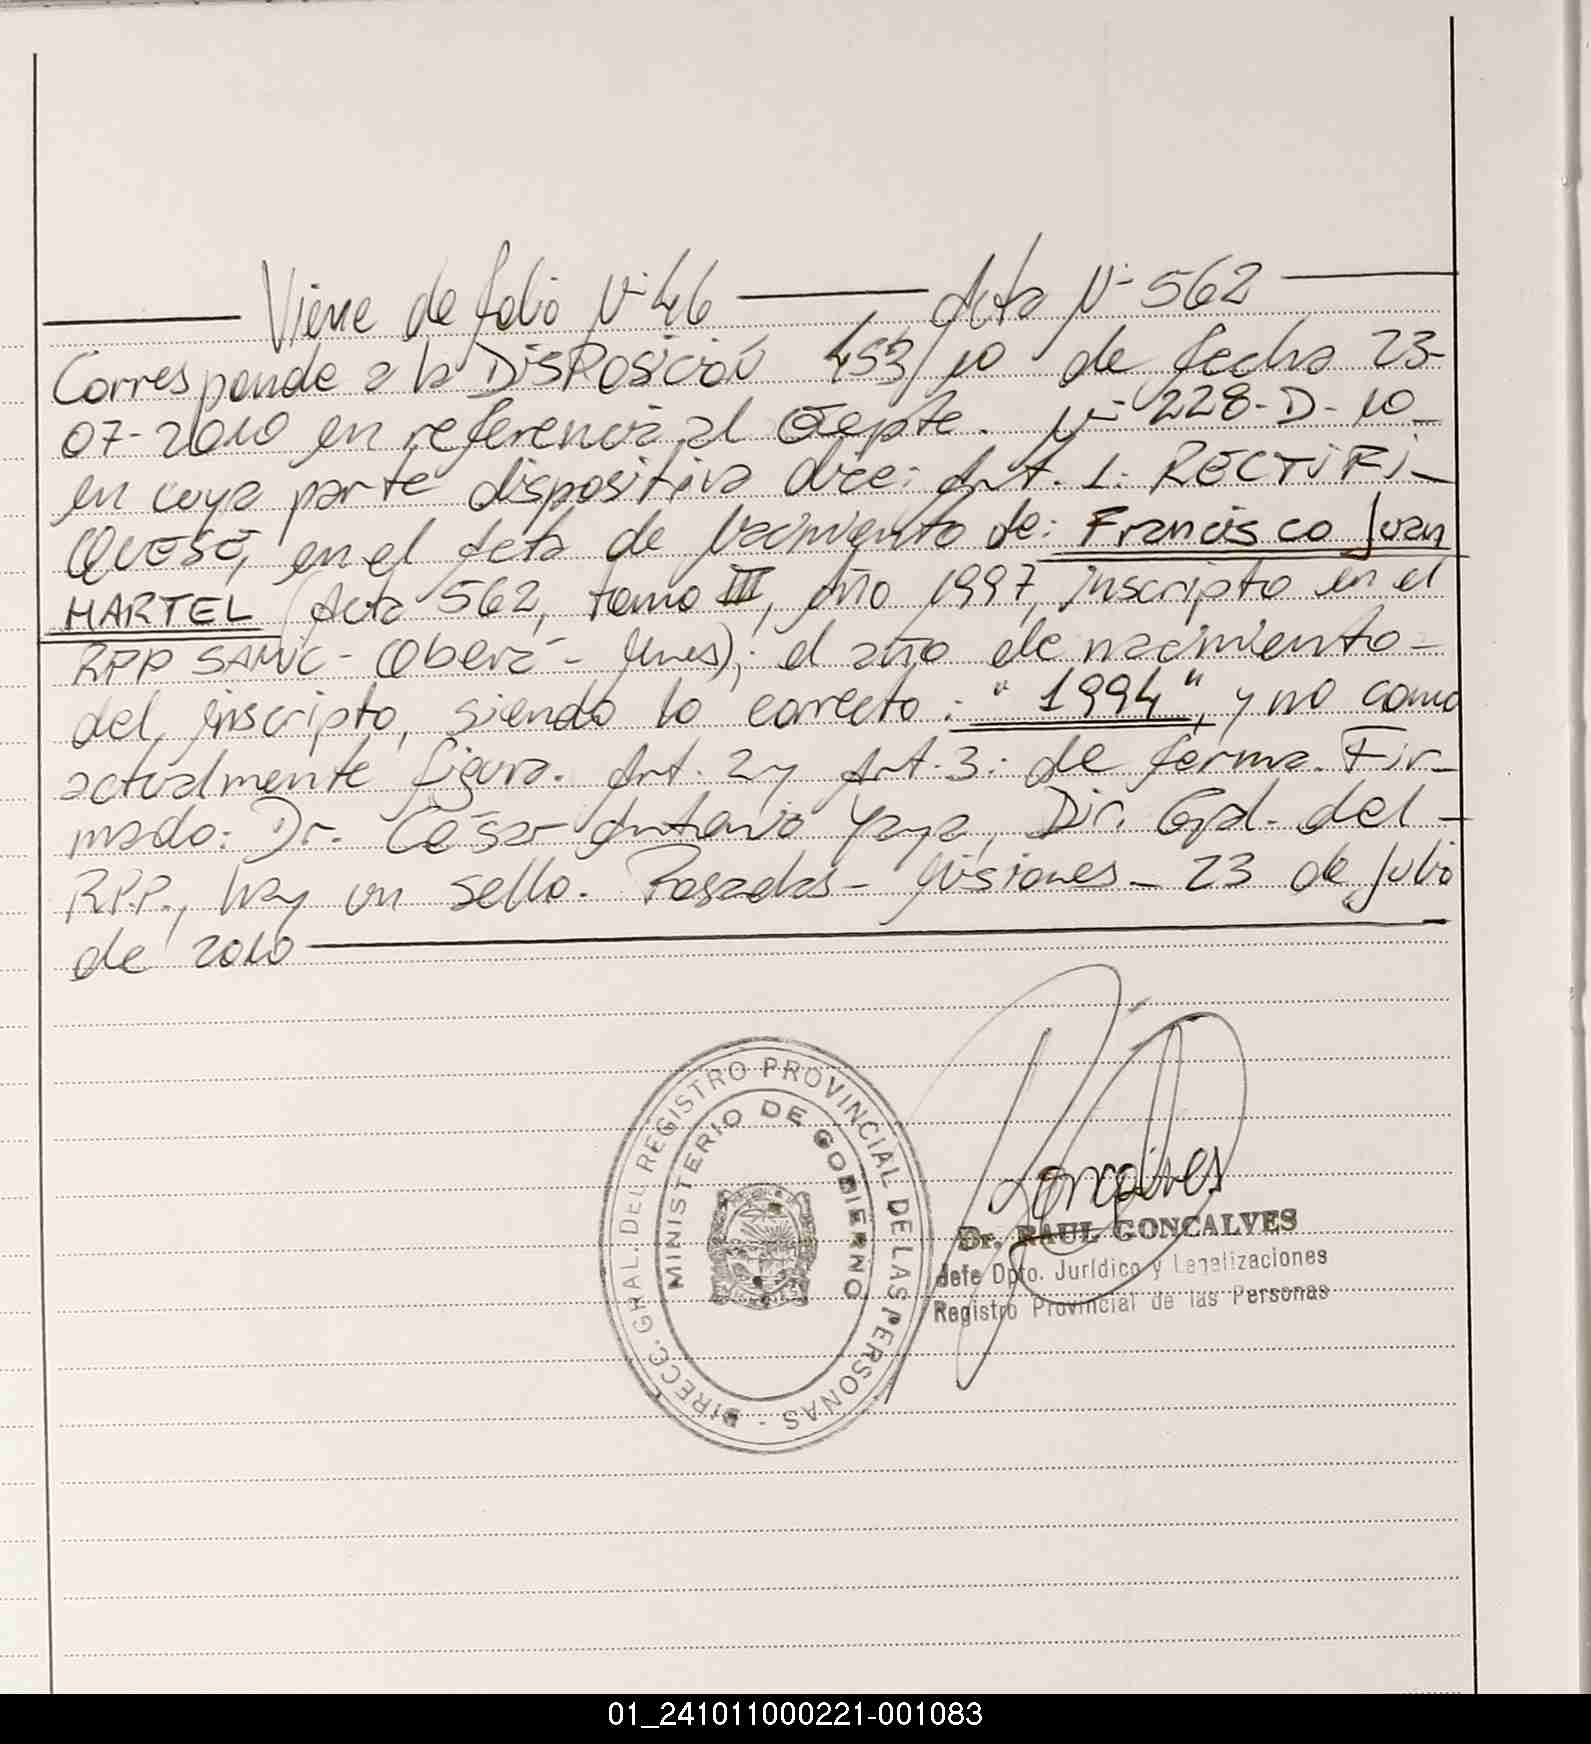 Viene de folio Nº 46 Acta Nº 562
Corresponde a la DISPOSICIÓN 453/10 de fecha 23-
07-2010 en referencia al Expte. Nº 228-D-10
en cuya parte dispositiva dice: Art. 1: RECTIFI-
QUESE, en el Acta de Nacimiento de: Francisco Juan
MARTEL (Acta 562, tomo III, Año 1997, inscripto en el
RPP SAMIC - Oberá - Mnes); el año de nacimiento -
del inscripto, siendo lo correcto: "1994", y no como
actualmente figura. Art. 2 y Art. 3: de forma. Fir-
mado: Dr. César Antonio Yaya, Dir. Gral. del -
R.P.P., hay un sello. Posadas - Misiones - 23 de Julio
de 2010
DIRECC. GRAL. DEL REGISTRO PROVINCIAL DE LAS PERSONAS -
MINISTERIO DE GOBIERNO
Goncalves
Dr. RAUL GONCALVES
Jefe Dpto. Jurídico y Legalizaciones
Registro Provincial de las Personas
01_241011000221-001083